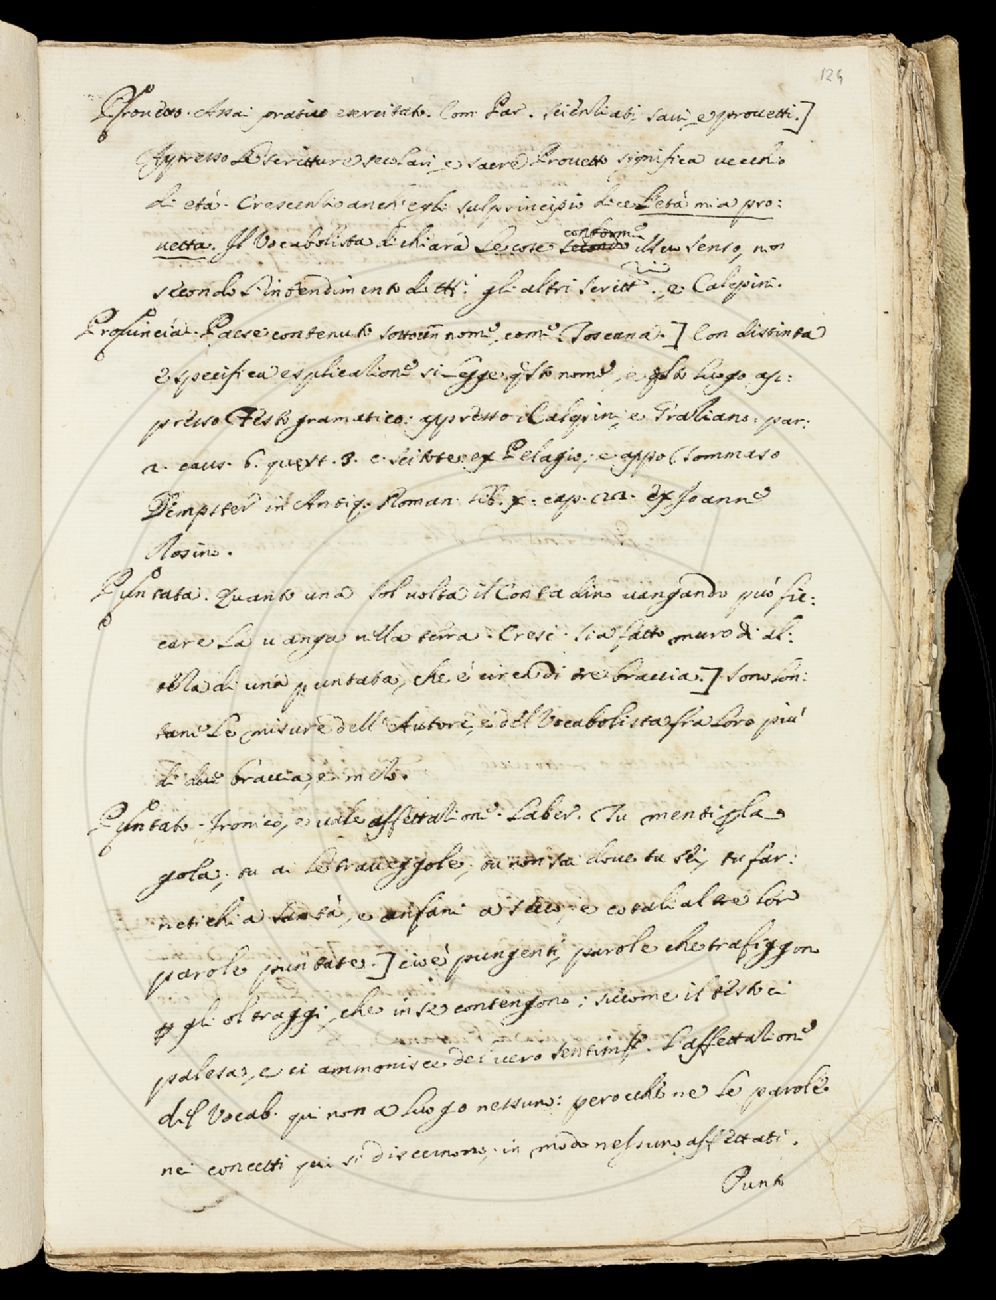 129
Provetto. Assai pratico esercitato. Com. Par. Scienziati, savi, e provetti.]
Appresso le scritture secolari, e sacre Provetto significa vecchio
di età. Crescenzio anch'egli sul principio dice L'età mia pro:
vetta. Il Vocabolista dichiara le cose secondo conforme il suo senso, non
secondo l'intendimento di tt: gli altri Scritt:, e Calepini.
Provincia. Paese contenuto sotto un nome, come Toscana.] Con distinta
e specifica esplicazione si legge qsto nome, e qsto luogo ap:
presso Festo gramatico: appresso il Calepin, e Graziano. par:
2. caus. 6. quest. 3. c. Scitote ex Pelagio; e appo Tommaso
Dempster in Antiq. Roman. lib. x. cap. 22. Ex Joanne
Rosino.
Puntata. Quanto una sol volta il Contadino vangando può fic:
care la vanga nella terra. Cresc. Sia fatto muro di al:
tezza di una puntata, che è circa di tre braccia.] Sono lon:
tane le misure dell'Autore, e del Vocabolista fra loro più
di due braccia, e mezo.
Puntato. Ironico, e vale affettazione. Laber. Tu menti p la
gola; tu ai le traveggole; tu non sa dove tu sei, tu far:
netichi a santà, e anfani a secco, e cotali altre lor
parole puntate.] cioè pungenti, parole che trafiggon
p gli oltraggi, che in se contengono; siccome il testo ci
palesa, e ci ammonisce del vero sentimto. L'affettazione
del Vocab. qui non a luogo nessuno: perocchè ne le parole
nei concetti qui si discernono, in modo nessuno affettati.
Punto